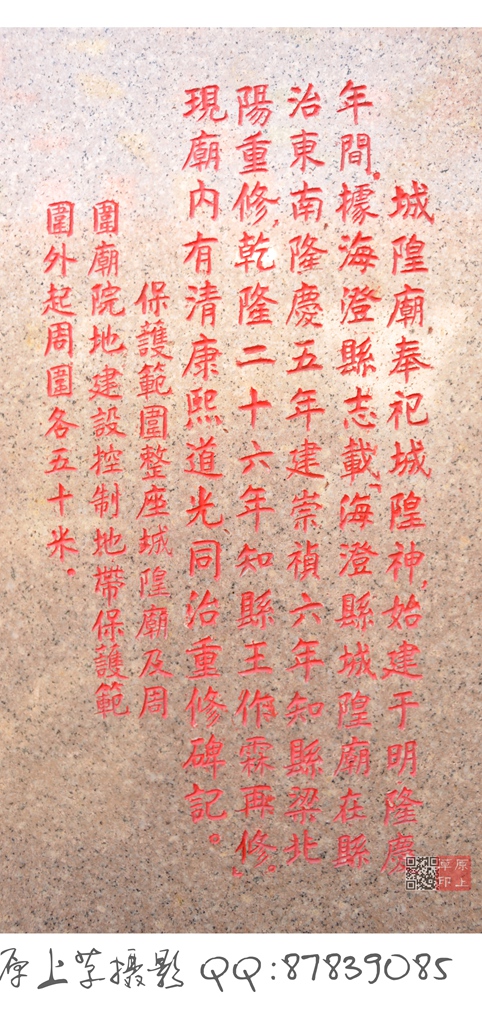 城隍廟奉祀城隍神,始建于明隆慶
年間。據海澄縣志載「海澄縣城隍廟在縣
治東南,隆慶五年建崇禎六年知縣梁北
陽重修,乾隆二十六年知縣王作霖再修。」
現廟内有清康熙、道光、同治重修碑記。
保護範圍整座城隍廟及周
圍廟院地建設控制地帶保護範
圍外起周圍各五十米。
原上草印
原上草攝影 QQ:87839085